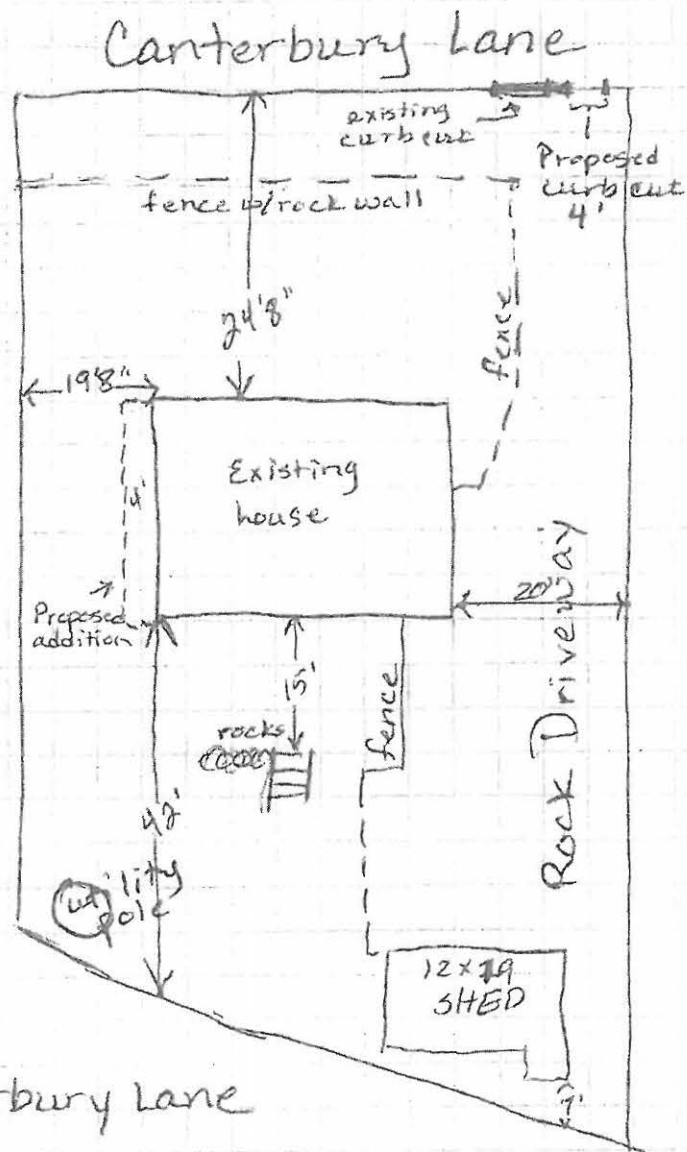 Canterbury Lane
existing
curb cut
Proposed
curb cut
4'
fence w/rock wall
24'8"
fence
19'8"
Existing
house
4'
Proposed
addition
20'
15'
fence
Rock Driveway
rocks
42'
utility
pole
12 x 19
SHED
7'
rbury Lane